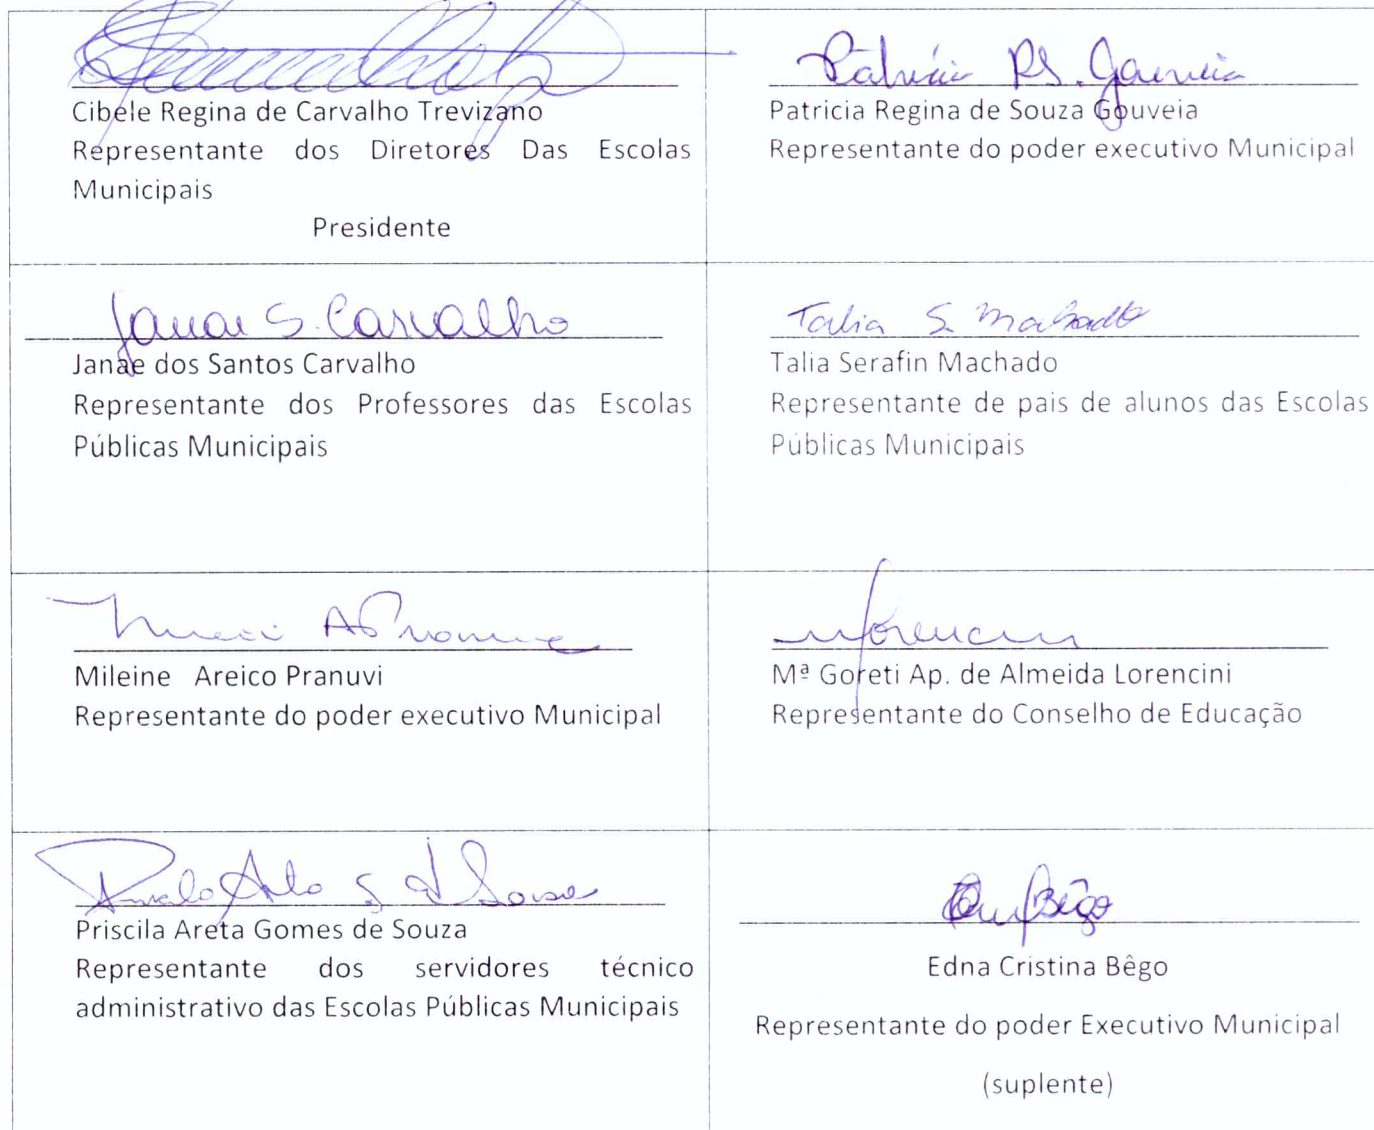 Cibele Regina de Carvalho Trevizano
Representante dos Diretores Das Escolas
Municipais
Presidente
Patricia R S. Gouveia
Patricia Regina de Souza Gouveia
Representante do poder executivo Municipal
Janae S. Carvalho
Janae dos Santos Carvalho
Representante dos Professores das Escolas
Públicas Municipais
Talia S. Machado
Talia Serafin Machado
Representante de pais de alunos das Escolas
Públicas Municipais
Mileine Areico Pranuvi
Representante do poder executivo Municipal
Mª Goreti Ap. de Almeida Lorencini
Representante do Conselho de Educação
Priscila Areta Gomes de Souza
Representante dos servidores técnico
administrativo das Escolas Públicas Municipais
Bêgo
Edna Cristina Bêgo
Representante do poder Executivo Municipal
(suplente)